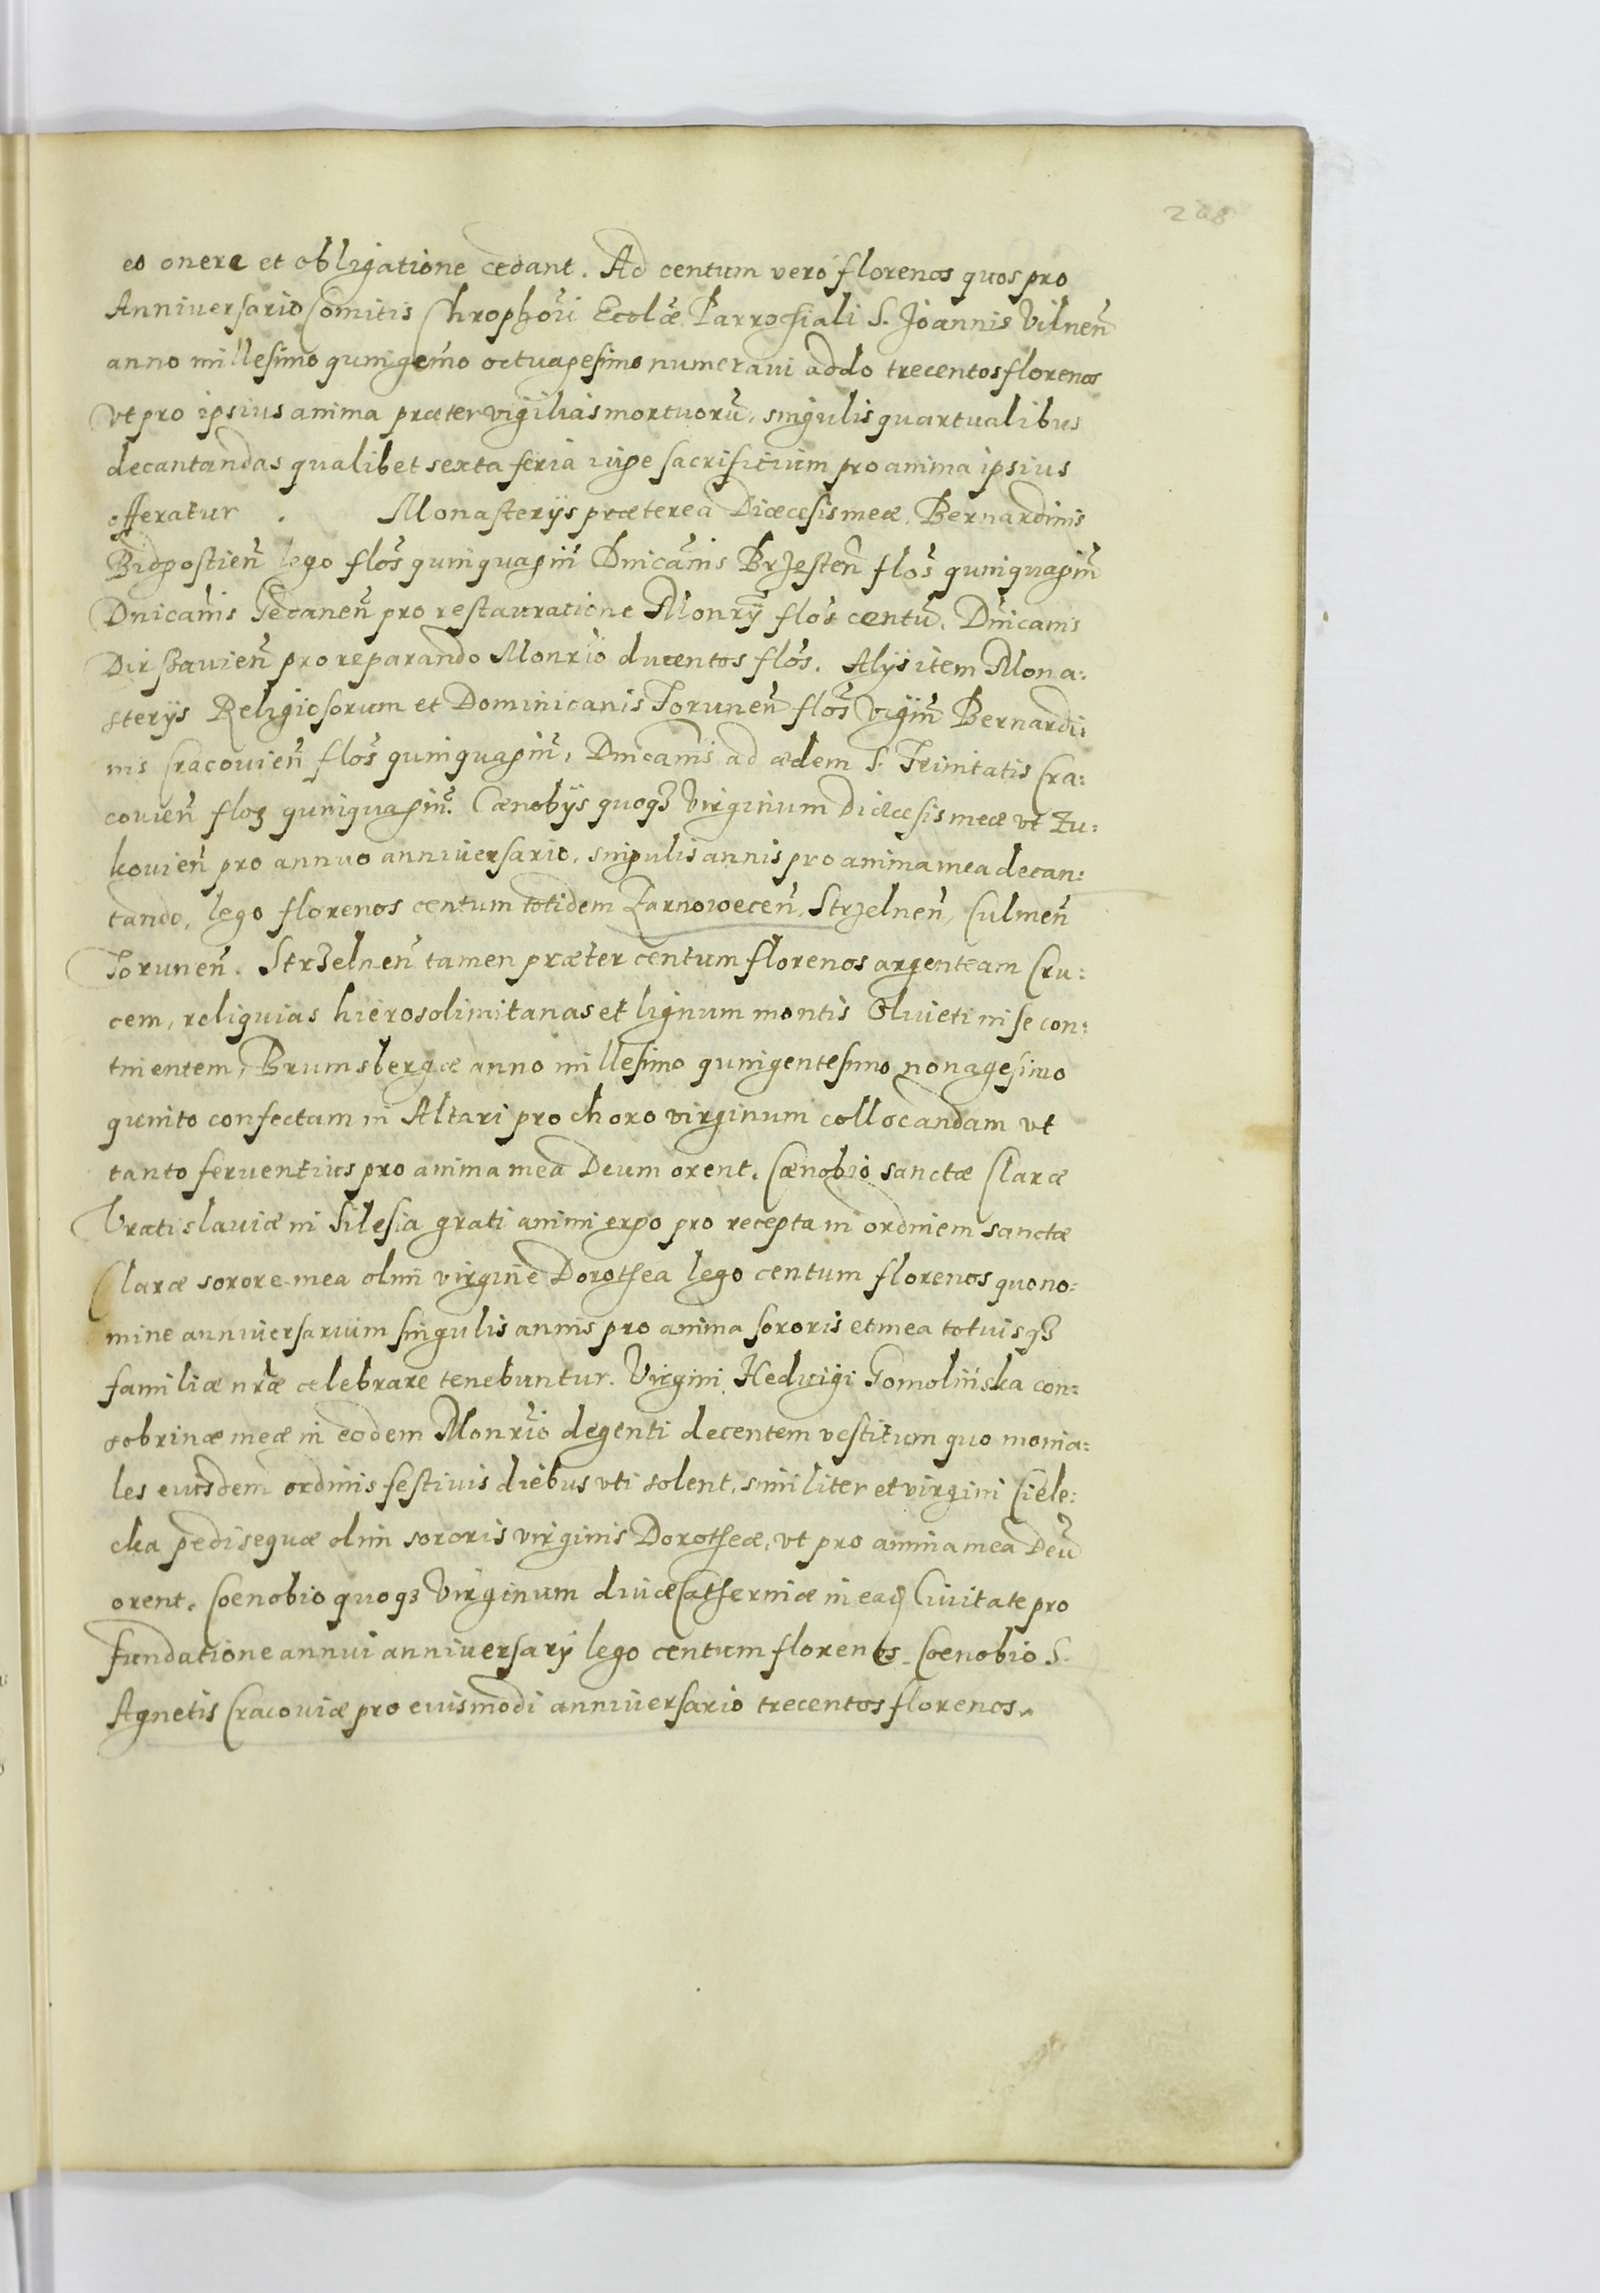 208
eo onere et obligatione cedant. Ad centum vero florenos quos pro
Anniversario Comitis Chrophovi Ecclæ Parrochiali S. Joannis Vilneñ
anno millesimo quingemo octuagesimo numeravi addo trecentos florenos
vt pro ipsius anima præter vigilias mortuorũ, singulis quartualibus
decantandas qualibet sexta feria iuge sacrificium pro anima ipsius
offeratur . Monasterijs præterea Diœcesis meæ, Bernardinis
Bidgostieñ lego flos quinquagiñ Dnicanis Brzesteñ flos quinquagiñ
Dnicanis Gedaneñ pro restauratione Monrÿ flos centũ. Dnicanis
Dirssavieñ pro reparando Monrio ducentos flos. Alijs item Mona:
sterijs Religiosorum et Dominicanis Toruneñ flos vigiñ Bernardi:
nis Cracovieñ flos quinquagiñ, Dnicanis ad ædem S. Trinitatis Cra:
covieñ flos quinquagiñ. Cænobijs quoqȝ Virginum Diœcesis meæ vt Zu:
kovieñ pro annuo anniversario, singulis annis pro anima mea decan:
tando, lego florenos centum totidem Zarnoweceñ, Strzelneñ, Culmeñ
Toruneñ. Strzelneñ tamen præter centum florenos argenteam Cru:
cem, reliquias hierosolimitanas et lignum montis Oliveti in se con:
tinentem, Brunsbergæ anno millesimo quingentesimo nonagesimo
quinto confectam in Altari pro choro virginum collocandam vt
tanto ferventius pro anima mea Deum orent. Cænobio sanctæ Claræ
Vratislaviæ in Silesia grati animi ergo pro recepta in ordinem sanctæ
Claræ sorore mea olim virgine Dorothea lego centum florenos quo no:
mine anniversarium singulis annis pro anima sororis et mea totiusqȝ
familiæ nræ celebrare tenebuntur. Virgini Hedvigi Gomolińska con:
sobrinæ meæ in eodem Monrio degenti decentem vestitum quo monia:
les eiusdem ordinis festivis diebus vti solent, similiter et virgini Ciele:
cka pedisequæ olim sororis virginis Dorotheæ, vt pro anima mea Deũ
orent. Cœnobio quoqȝ Virginum divæ Catherinæ in eaqȝ Civitate pro
fundatione annui anniversarÿ lego centum florenos. Cœnobio S.
Agnetis Cracoviæ pro eiusmodi anniversario trecentos florenos.